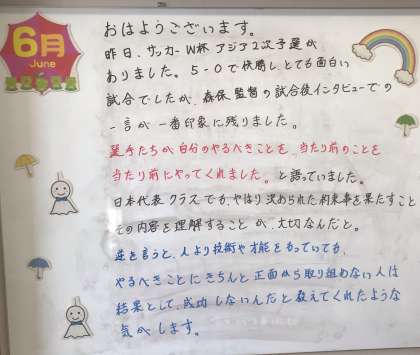 6月
June
おはようございます。
昨日、サッカーW杯アジア2次予選が
ありました。5-0で快勝し、とても面白い
試合でしたが、森保監督の試合後インタビューでの
一言が一番印象に残りました。
選手たちが自分のやるべきことを、当たり前のことを
当たり前にやってくれました。と語っていました。
日本代表クラスでも、やはり決められた約束事を果たすこと
その内容を理解することが、大切なんだと。
逆を言うと、人より技術や才能をもっていても、
やるべきことにきちんと正面から取り組めない人は
結果として、成功しないんだと教えてくれたような
気がします。